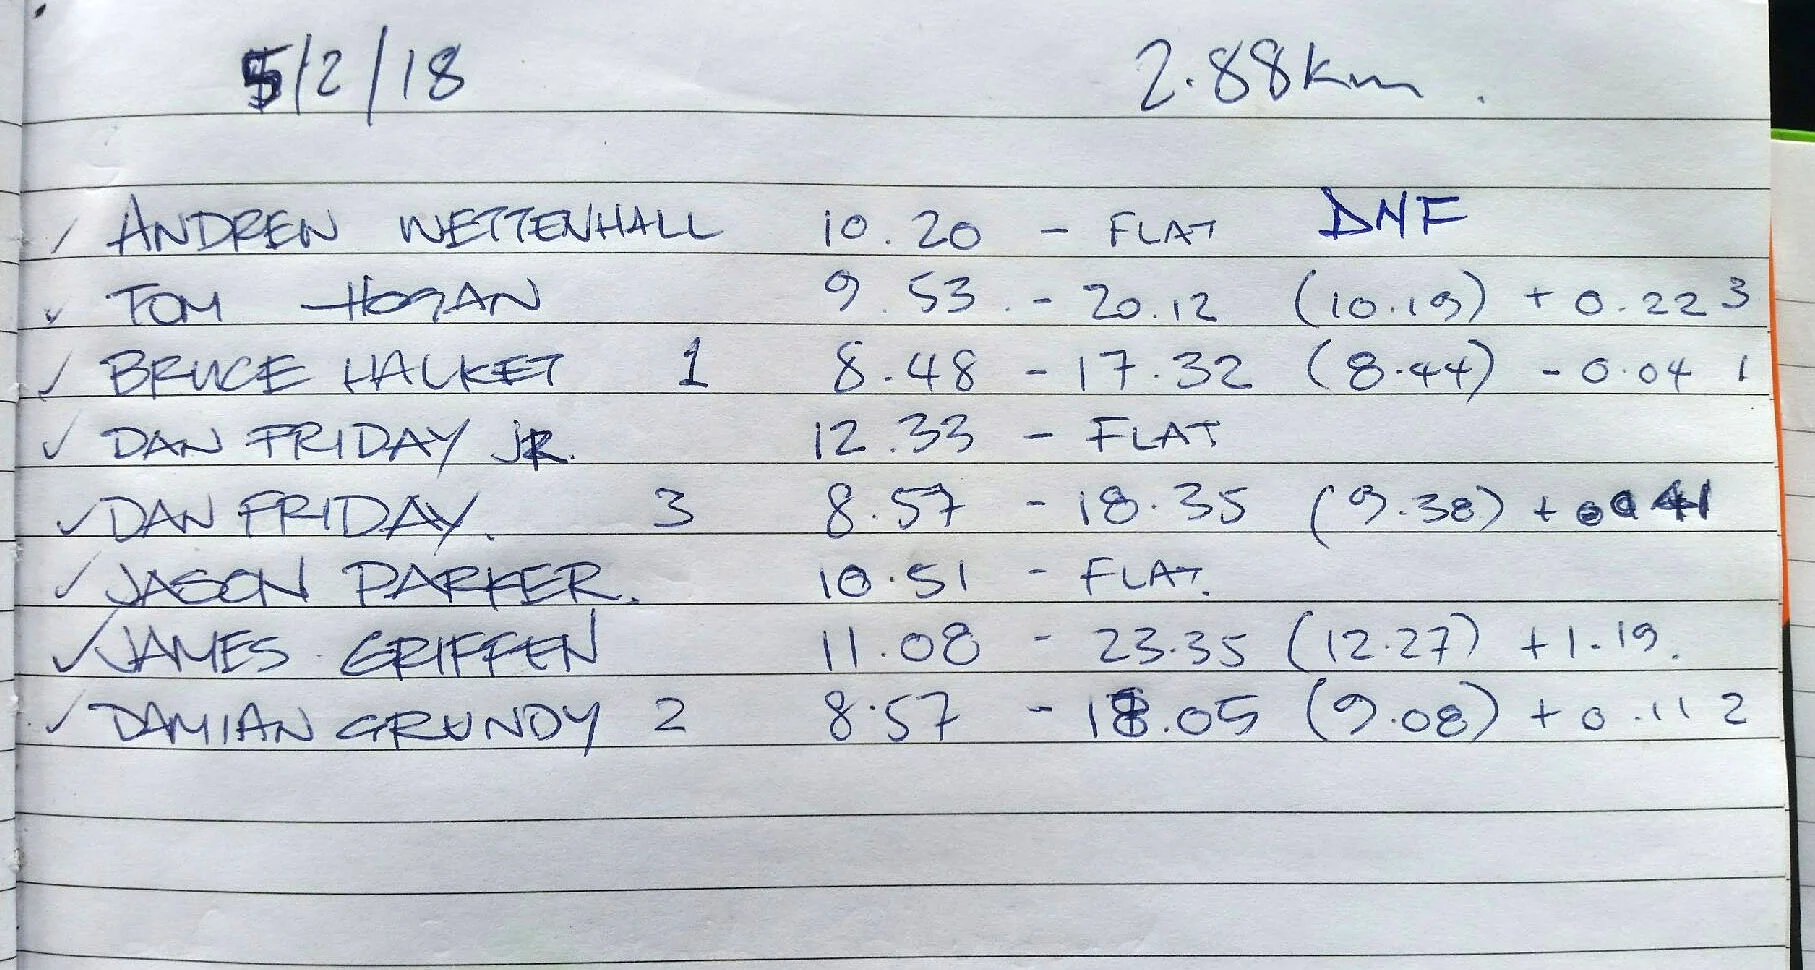 5/2/18 2.88km.
ANDREW WETTENHALL 10.20 - FLAT DNF
TOM HOGAN 9.53 - 20.12 (10.19) + 0.22 3
BRUCE HALKET 1 8.48 - 17.32 (8.44) - 0.04 1
DAN FRIDAY JR. 12.33 - FLAT
DAN FRIDAY. 3 8.57 - 18.35 (9.38) + 41
JASON PARKER. 10.51 - FLAT.
JAMES GRIFFEN 11.08 - 23.35 (12.27) +1.19.
DAMIAN GRUNDY 2 8.57 - 18.05 (9.08) + 0.11 2